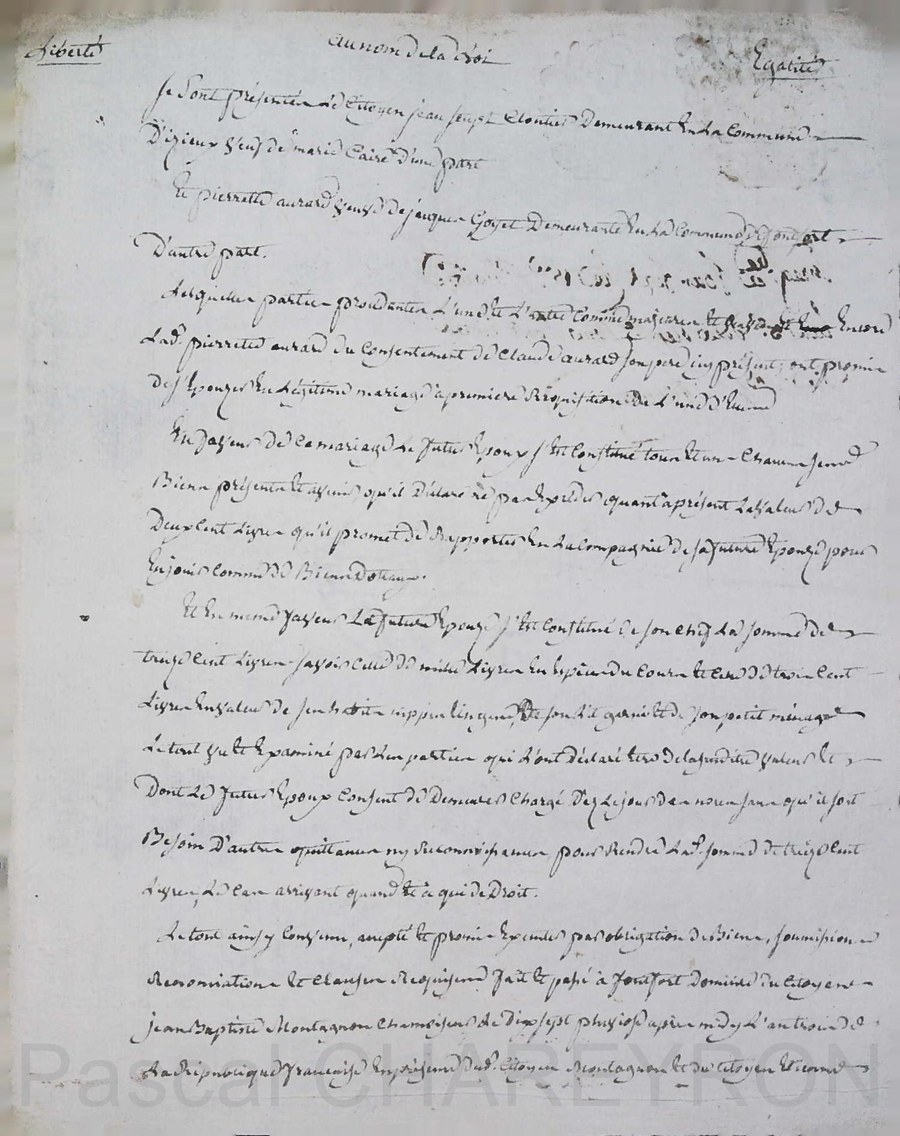 Liberté au nom de la Loi Egalité
Se sont présentés Le Citoyen jean Cloutier Demeurant En La Commune
D'izieux veuf de marie Caire d'une part
Et pierrette aurard veuve de jacques Goyet Demeurante En La Commune de fontfort
D'autre part.
Lesquelles parties procédantes L'une et L'autre Comme majeures et Encore
Lad. pierrette aurard du Consentement de Claude aurard son père icy présent, ont promis
De s'Epouzer En Légitime mariage à première Réquisition De L'une d'Entre
En faveur de Ce mariage Le futur Epoux s'Est Constitué tous Et un Chacun ses
Biens présents Et avenir, qu'il Déclare ne pas Exceder quant à présent La valeur de
Deux Cent Livres qu'il promet de Rapporter En La Compagnie de sa future Epouze pour
En jouir Comme de Biens Dotaux.
Et En meme faveur La future Epouze s'Est Constitué De son Chef La somme de
treize Cent Livres savoir Celle de mille Livres En Espèces du Cours Et Celle de trois Cent
Livres En valeur de ses habits nippes Linges, De son Lit garni Et de son petit ménage
Le tout vu Et Examiné par Les parties qui L'ont Déclaré Etre de la susditte valeur Et
Dont Le futur Epoux Consent de Demeurer Chargé Dez Le jour des noces sans qu'il soit
Besoin D'autres quittances ny Reconnoissances pour Rendre Lad. somme de treize Cent
Livres, Le Cas arrivant quand Et à qui de Droit.
Le tout ainsy Convenu, accepté Et promis Executer par obligation de Biens, soumissions
Renonciations Et Clauses Requises fait Et passé à fontfort Domicile du Citoyen
jean Baptiste Montagnon Chamoiseur Le Dix sept pluviose après midy L'an trois de
La République francoise En présence dud. Citoyen Montagnon Et du Citoyen
Pascal CHAREYRON